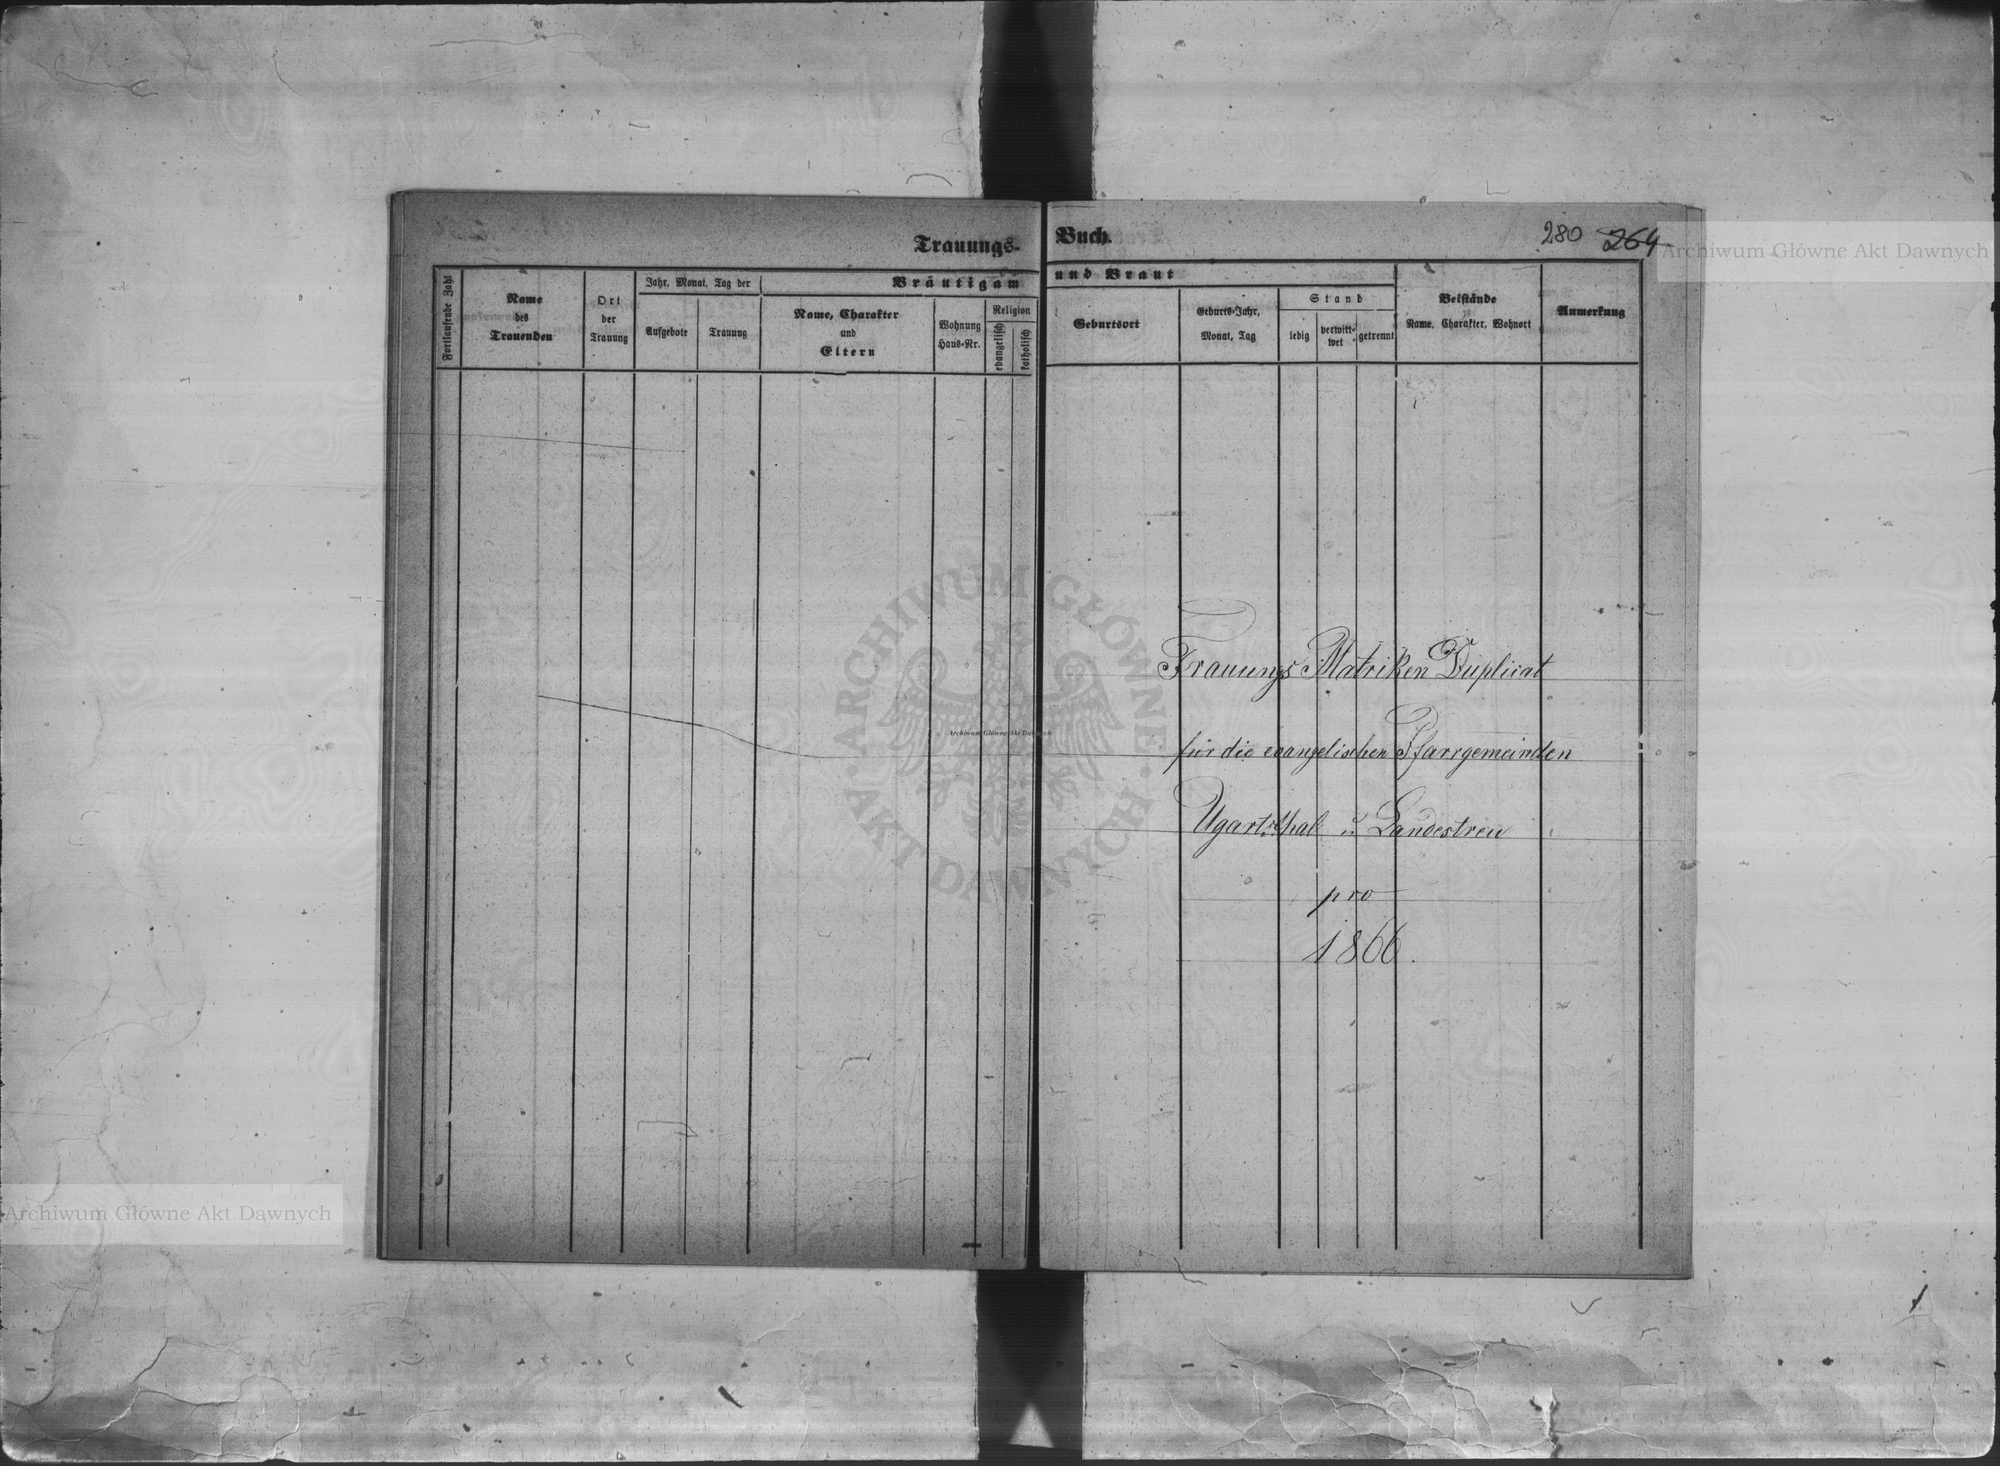 Trauungs-
Buch.
280 264
Fortlaufende Zahl
Name
des
Trauenden
Ort
der
Trauung
Jahr, Monat, Tag der
Aufgebote
Trauung
Bräutigam
Name, Charakter
und
Eltern
Wohnung
Haus-Nr.
Religion
evangelisch
katholisch
und Braut
Geburtsort
Geburts-Jahr,
Monat, Tag
Stand
ledig
verwitt-
wet
getrennt
Beistände
Name, Charakter, Wohnort
Anmerkung
Trauungs Matriken Duplicat
für die evangelischen Pfarrgemeinden
Ugartsthal u. Landestreu
pro
1866.
Archiwum Główne Akt Dawnych
ARCHIWUM GŁÓWNE
AKT DAWNYCH
Archiwum Główne Akt Dawnych
Archiwum Główne Akt Dawnych